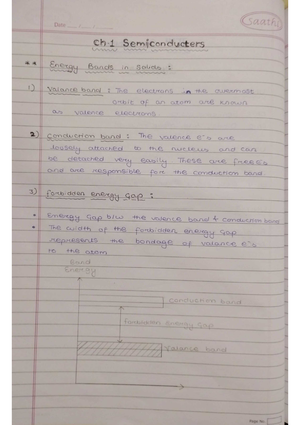 Saathi
Date
Ch:1 Semiconducters
Energy Bands in Solids :
1) Valance band : The electrons in the outermost
orbit of an atom are known
as valence electrons
2) Conduction band : The valence e⁻s are
loosely attached to the nucleus and can
be detached very easily These are free e⁻s
and are responsible for the conduction band.
3) Forbidden Energy Gap :
• Energy Gap b/w the valence band & conduction band
• The width of the forbidden energy gap
represents the bondage of valance e⁻s
to the atom
Band
Energy
conduction band
Forbidden energy Gap
Valance band
Page No